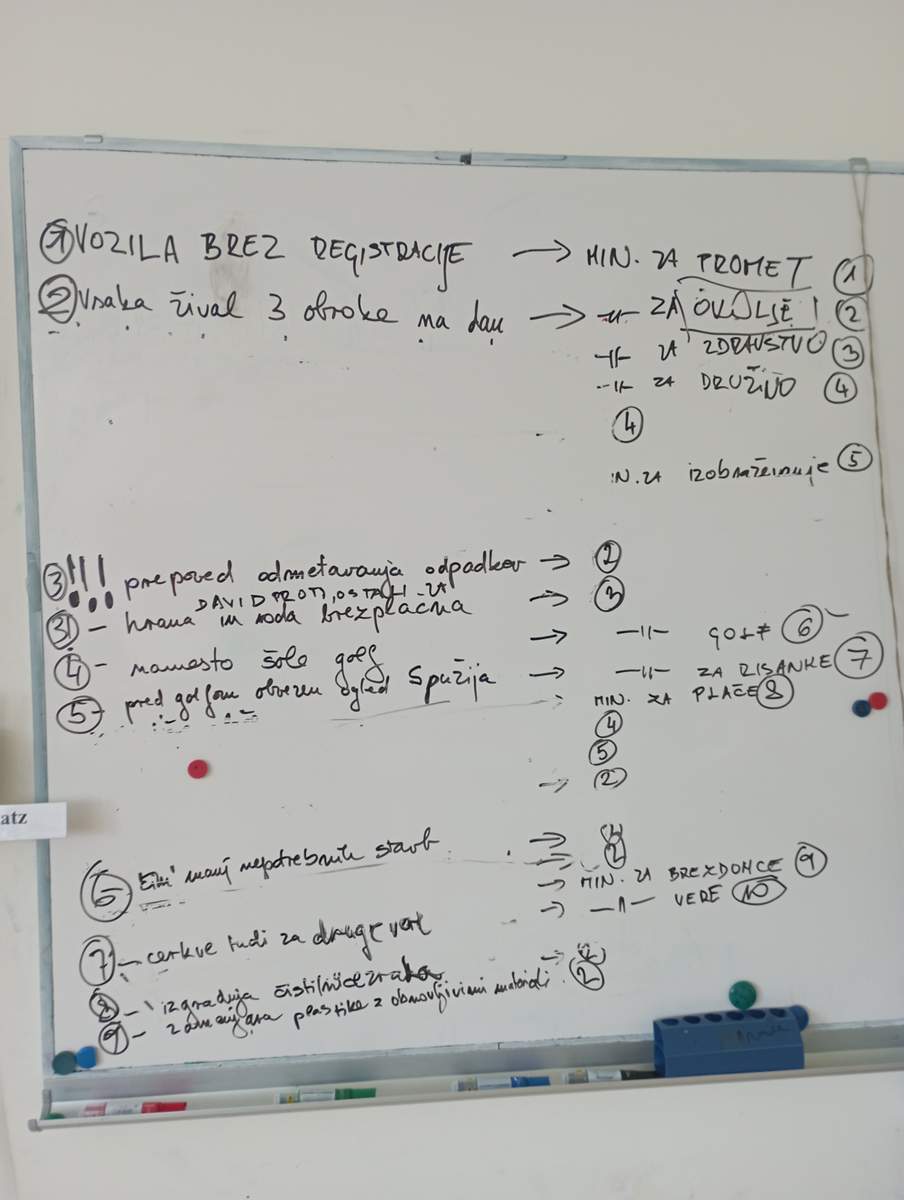 1 VOZILA BREZ REGISTRACIJE → MIN. ZA PROMET 1
2 Vsaka žival 3 obroke na dan → -||- ZA OKOLJE ! 2
-||- ZA ZDRAVSTVO 3
-||- ZA DRUŽINO 4
4
IN. ZA 5
3 !!! prepoved odmetavanja odpadkov → 2
DAVID PROTI, OSTALI - ZA
3) - hrana in voda brezplačna → 3
4 - namesto šole golf → -||- GOLF 6
5 - pred golfom obvezen ogled Spužija → -||- ZA RISANKE 7
MIN. ZA PLAČE 8
4
5
→ 2
6 manj nepotrebnih stavb → 2
→ MIN. ZA BREZDOMCE 9
7 - cerkve tudi za druge vere → -||- VERE 10
8 - izgradnja čistilnice zraka → 2
9 - zamenjava plastike z obnovljivimi materiali. 2
atz